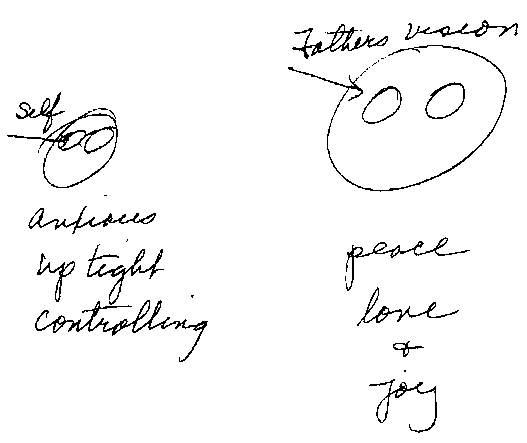 Fathers vision
self
anxious
up tight
controlling
peace
love
&
joy